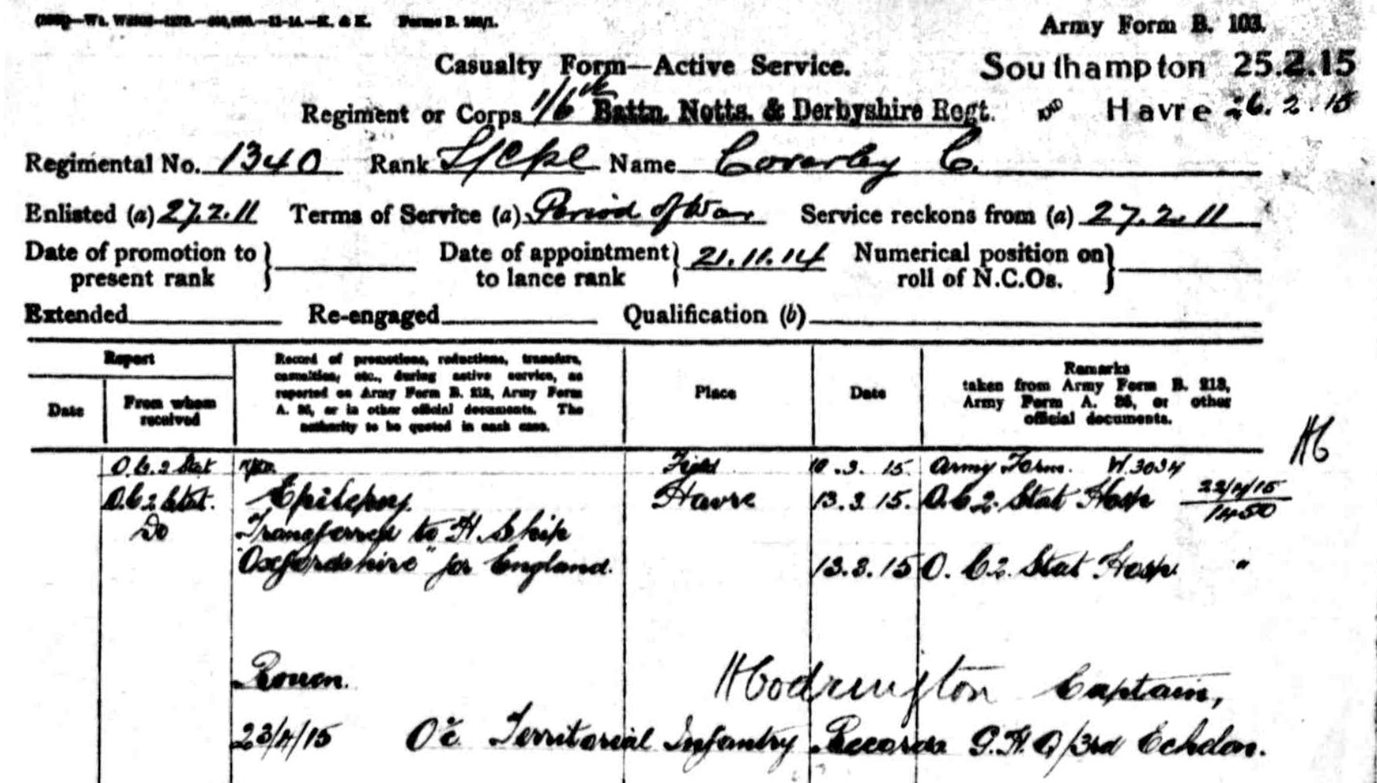 Forms B. 103/1.
Army Form B. 103.
Casualty Form—Active Service.
Southampton 25.2.15
Regiment or Corps 1/6th Battn. Notts. & Derbyshire Regt.
AND Havre 26.2.15
Regimental No. 1340 Rank L/Cpl Name Coverley C.
Enlisted (a) 27.2.11 Terms of Service (a) Period of War Service reckons from (a) 27.2.11
Date of promotion to present rank
Date of appointment to lance rank 21.11.14
Numerical position on roll of N.C.Os.
Extended Re-engaged Qualification (b)
Report
Date
From whom received
Record of promotions, reductions, transfers,
casualties, etc., during active service, as
reported on Army Form B. 213, Army Form
A. 36, or in other official documents. The
authority to be quoted in each case.
Place
Date
Remarks
taken from Army Form B. 213,
Army Form A. 36, or other
official documents.
O.C. 2 Stat Field 10.3.15 Army Form W.3034
O.C. 2 Stat. Epilepsy Havre 13.3.15. O.C. 2. Stat Hosp 23/4/15
1450
Do Transferred to H. Ship
"Oxfordshire" for England. 13.3.15 O. C. 2. Stat Hosp "
Rouen.
Captain,
23/4/15 O i/c Territorial Infantry Records G.H.Q/3rd Echelon.